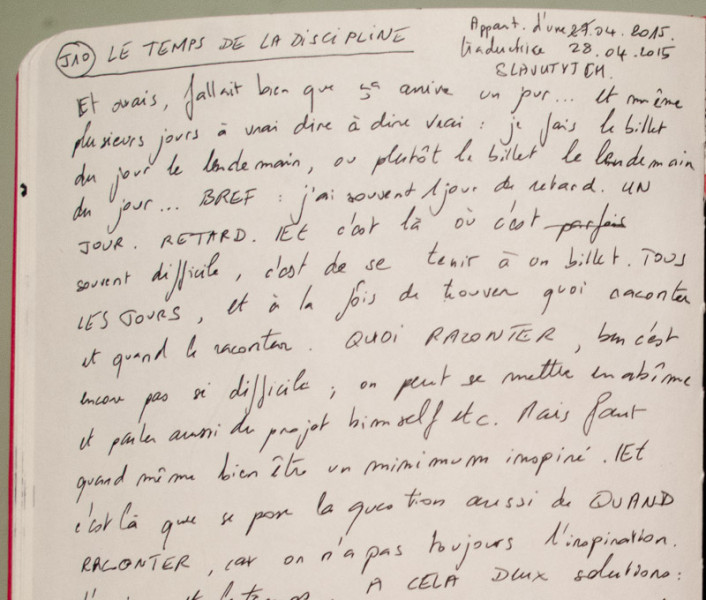 J10 LE TEMPS DE LA DISCIPLINE
Appart. d'une 27.04.2015.
traductrice 28.04.2015
SLAVUTYTCH.
Et ouais, fallait bien que ça arrive un jour... et même
plusieurs jours à vrai dire à dire vrai : je fais le billet
du jour le lendemain, ou plutôt le billet le lendemain
du jour... BREF : j'ai souvent 1 jour de retard. UN
JOUR. RETARD. Et c'est là où c'est parfois
souvent difficile, c'est de se tenir à un billet. TOUS
LES JOURS, et à la fois de trouver quoi raconter
et quand le raconter. QUOI RACONTER, ben c'est
encore pas si difficile ; on peut se mettre en abîme
et parler aussi du projet himself etc. Mais faut
quand même bien être un minimum inspiré. Et
c'est là que se pose la question aussi de QUAND
RACONTER, car on n'a pas toujours l'inspiration.
A CELA DEUX solutions :